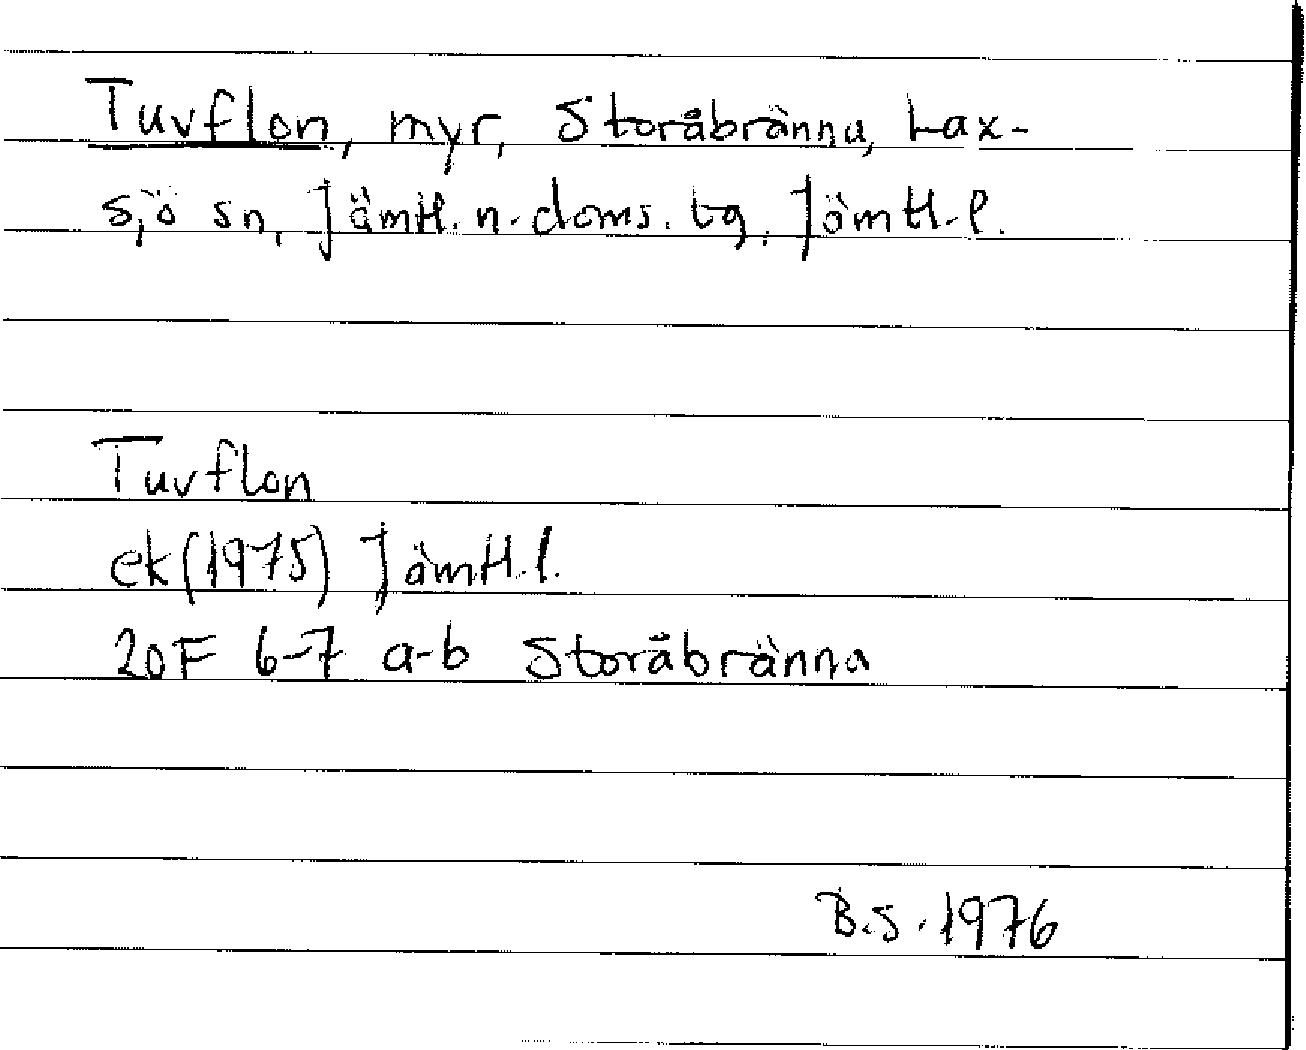 Tuvflon, myr, Storåbränna, Lax-
sjö sn, Jämtl. n. doms. tg, Jämtl. l.
Tuvflon
ek (1975) Jämtl. l.
20F 6-7 a-b Storåbränna
B.S. 1976